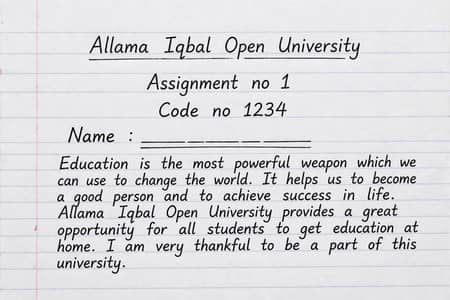 Allama Iqbal Open University
Assignment no 1
Code no 1234
Name :
Education is the most powerful weapon which we
can use to change the world. It helps us to become
a good person and to achieve success in life.
Allama Iqbal Open University provides a great
opportunity for all students to get education at
home. I am very thankful to be a part of this
university.